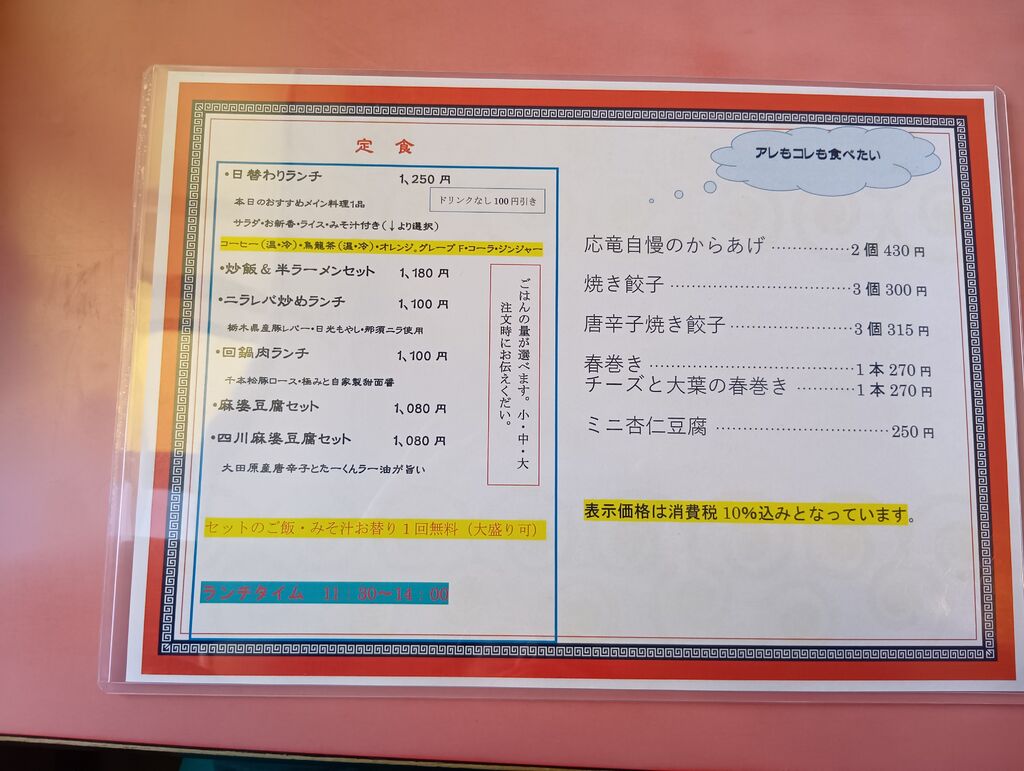 定 食
・日替わりランチ 1,250 円
本日のおすすめメイン料理1品
ドリンクなし 100 円引き
サラダ・お新香・ライス・みそ汁付き(↓より選択)
コーヒー(温・冷)・烏龍茶(温・冷)・オレンジ。グレープF・コーラ・ジンジャー
・炒飯&半ラーメンセット 1,180 円
・ニラレバ炒めランチ 1,100 円
栃木県産豚レバー・日光もやし・那須ニラ使用
・回鍋肉ランチ 1,100 円
千本松豚ロース・極みと自家製甜面醬
・麻婆豆腐セット 1,080 円
・四川麻婆豆腐セット 1,080 円
大田原産唐辛子とたーくんラー油が旨い
ごはんの量が選べます。小・中・大
注文時にお伝えくだい。
セットのご飯・みそ汁お替り1回無料(大盛り可)
ランチタイム 11:30~14:00
アレもコレも食べたい
応竜自慢のからあげ ……………2 個 430 円
焼き餃子 ……………………………3 個 300 円
唐辛子焼き餃子 ……………………3 個 315 円
春巻き …………………………………1 本 270 円
チーズと大葉の春巻き …………1 本 270 円
ミニ杏仁豆腐 ……………………………250 円
表示価格は消費税 10%込みとなっています。